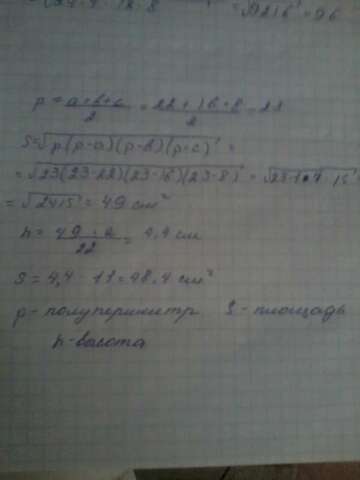 = √9216 = 96
p = a+b+c/2 = 22+16+8/2 = 23
S=√p(p-a)(p-b)(p-c) =
= √23(23-22)(23-16)(23-8) = √23·1·7·15
= √2415 = 49 cm²
h = 49·2/22 = 4,4 см
S = 4,4 · 11 = 48,4 см²
p - полупериметр S - площадь
h - высота